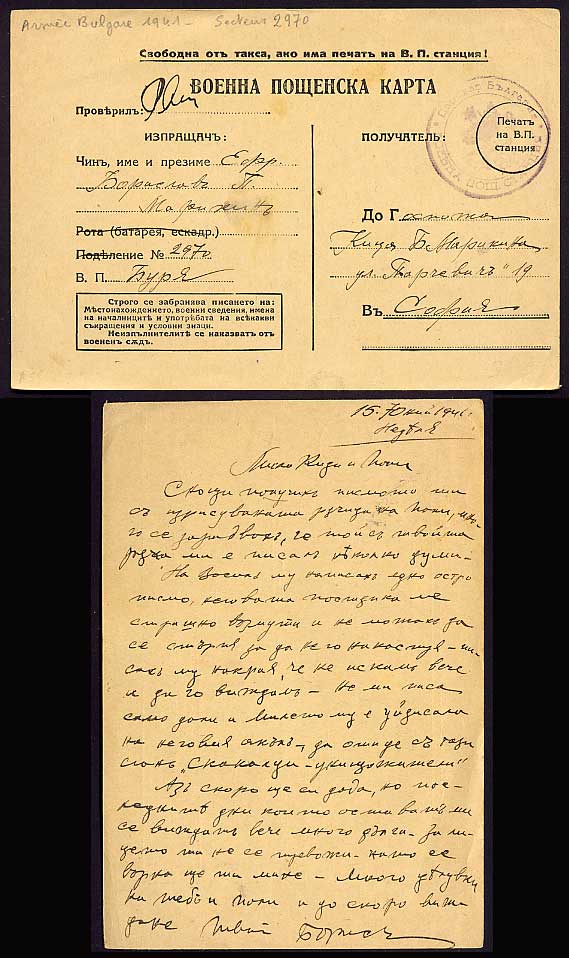 Armée Bulgare 1941 - Secteur 2970
Свободна отъ такса, ако има печатъ на В. П. станция!
ВОЕННА ПОЩЕНСКА КАРТА
Провѣрилъ:
ИЗПРАЩАЧЪ:
Чинъ, име и презиме Ефр.
Бориславъ П.
Рота (батарея, ескадр.)
Подѣление № 2970
В. П. Буря
Строго се забранява писането на:
Мѣстонахождението, военни сведения, имена
на началницитѣ и употрѣбата на всѣкакви
съкращения и условни знаци.
Неизпълнителитѣ се наказватъ отъ
воененъ сѫдъ.
ПОЛУЧАТЕЛЬ:
Печатъ
на В.П.
станция
До Госпожа
Б. Марикина
ул. "Парчевичъ" 19
Въ София
15. Юний 1941.
Недѣля
Мила и Попи
Снощи получихъ писмото ти
съ изрисуваната рѫчица на Попи, мно-
го се зарадвахъ, че той съ твойта
рѫка ми е писалъ нѣколко думи -
На му написахъ едно остро
писмо, неговата постѫпка ме
страшно възмути и не можахъ да
се стърпя за да не го - пи-
сахъ му накрая, че не искамъ вече
и да го виждамъ - Не ми писа
само дали и Милето му е
на неговия акълъ, да отиде съ тази
"Скакалци - унищожители"
Азъ скоро ще си дода, но пос-
леднитѣ дни които оставатъ ми
се виждатъ вече много дълги - За
ти не се тревожи - като се
върна ще ти мине - Много цѣлувки
на тебъ и Попи и до скоро виж-
дане Твой Борисъ